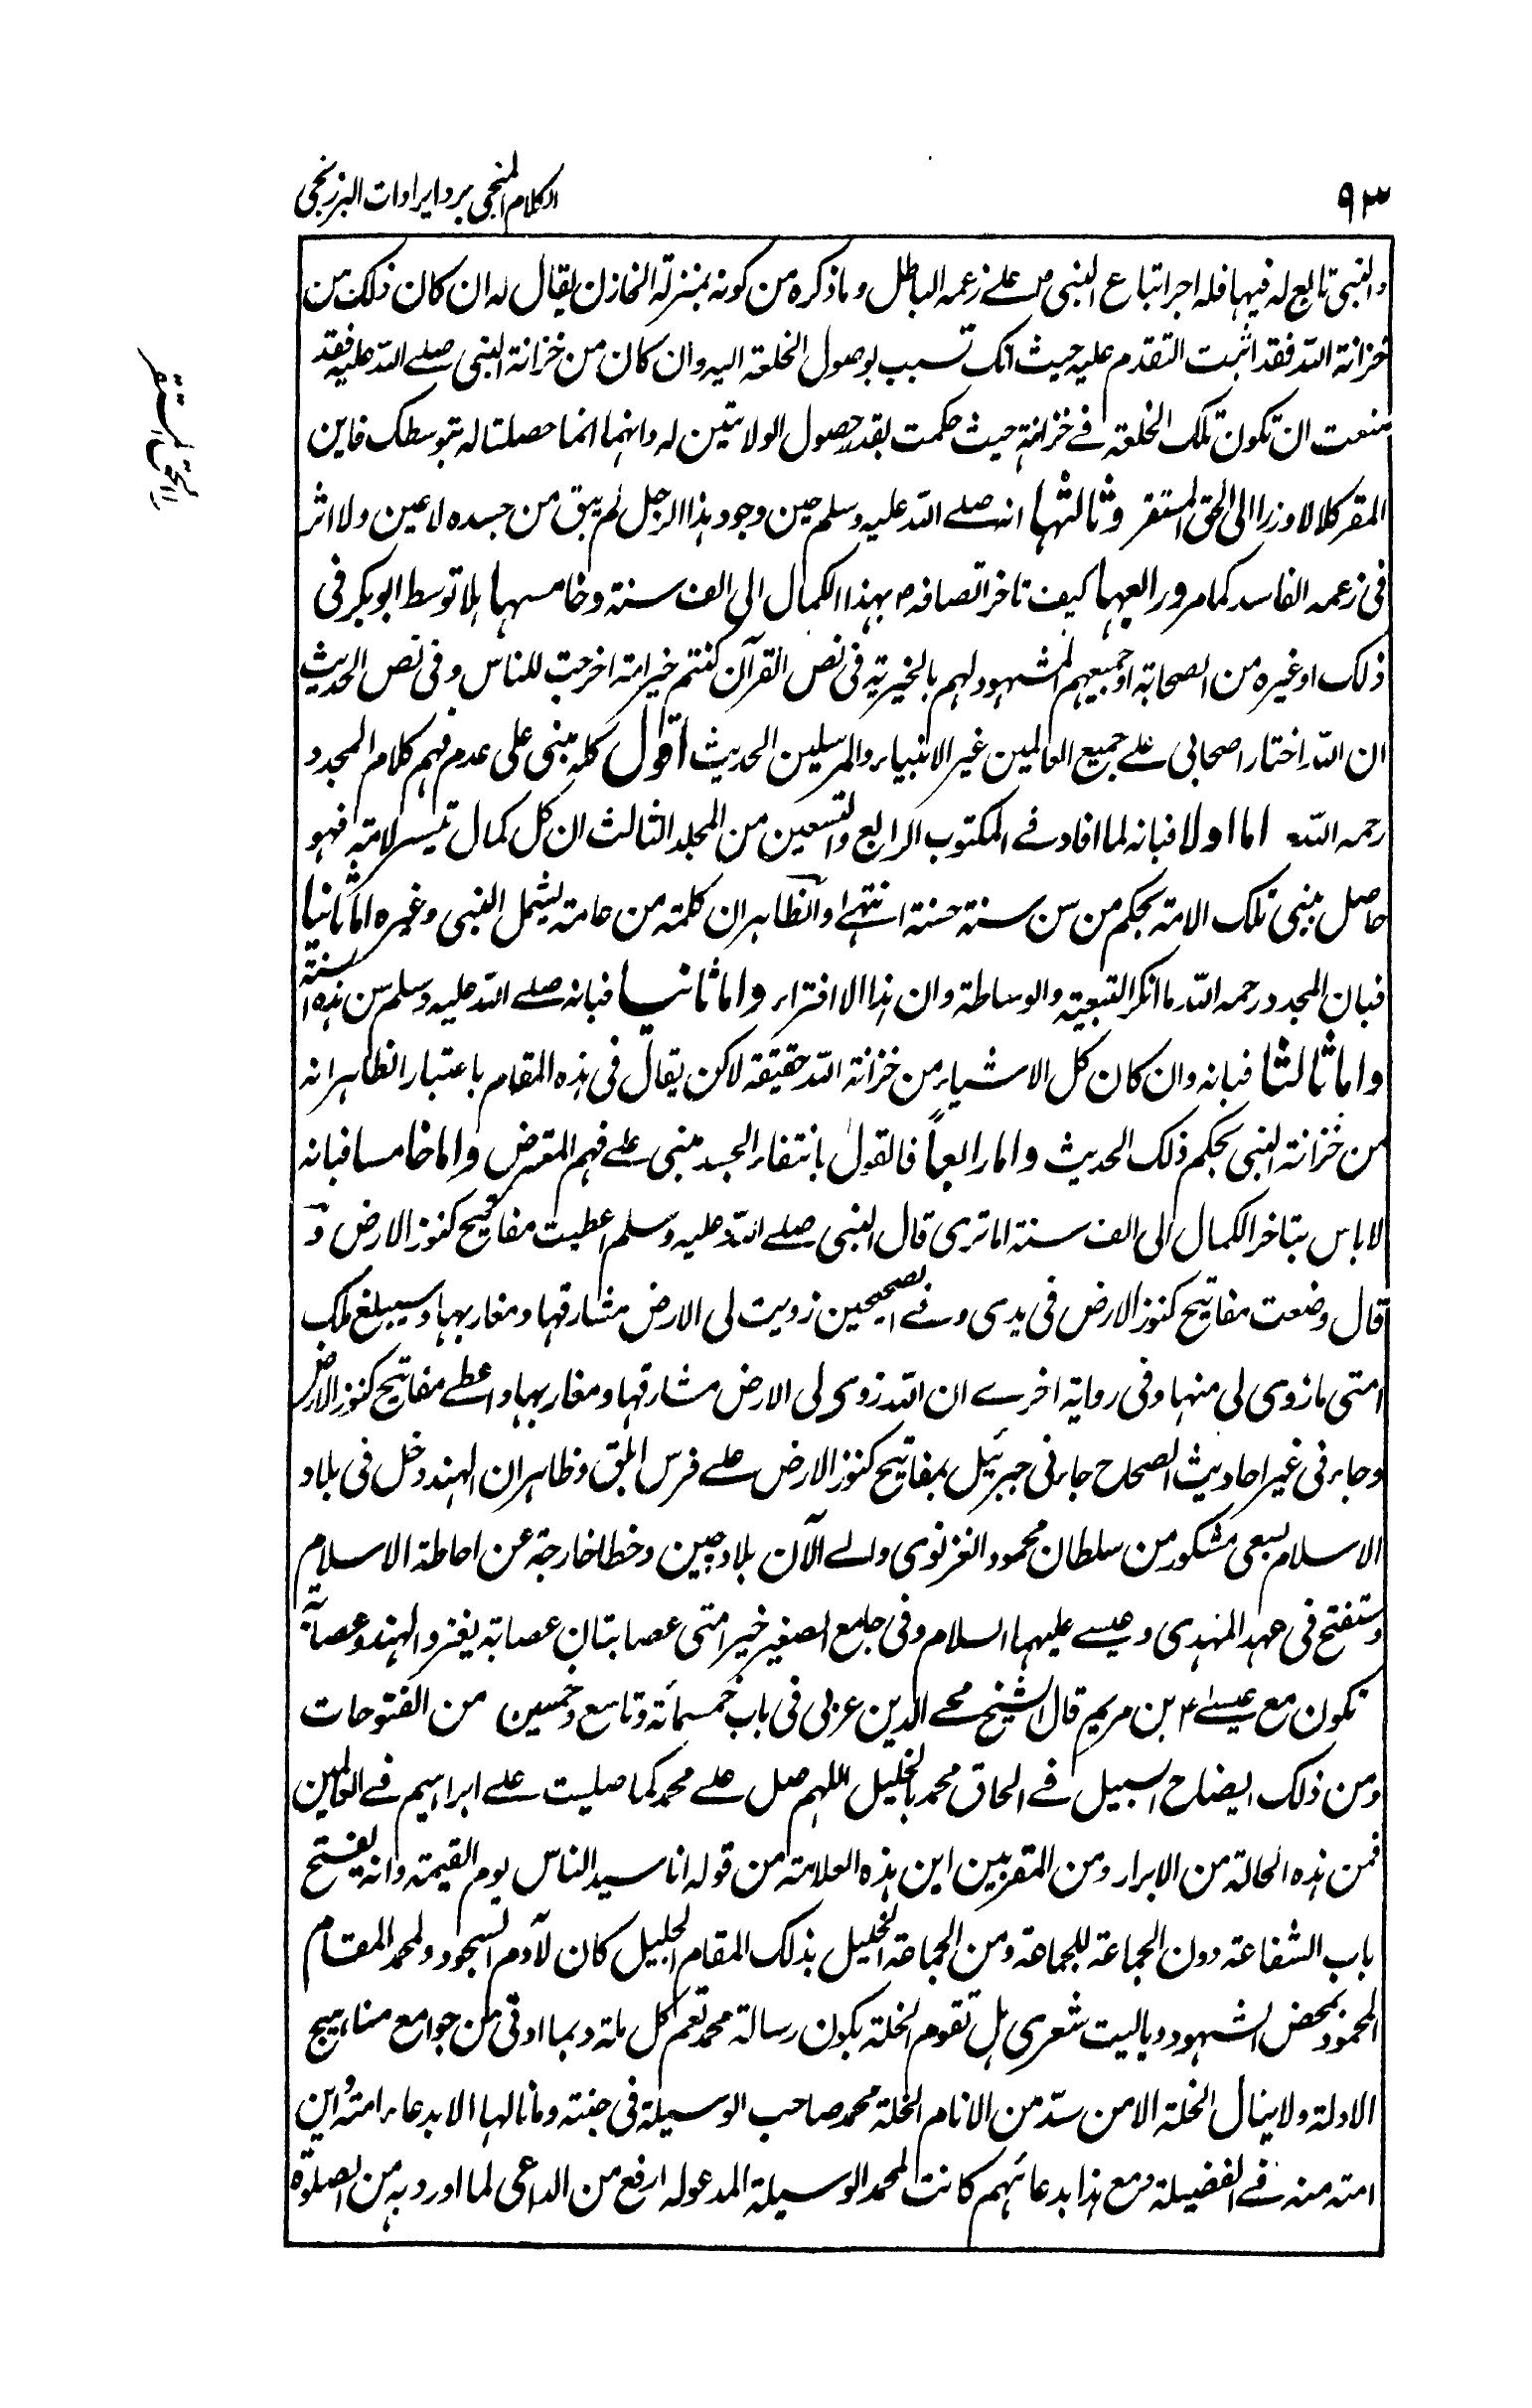 ٩٣
الكلام المنجي برد ايرادات البرزنجي
والنبي تابع له فيها فله اجر اتباع النبي ص على زعمه الباطل وما ذكره من كونه بمنزلة الخازن يقال له ان كان ذلك من
خزانة الله فقد اثبت التقدم عليه حيث انك تسبب بوصول الخلعة اليه وان كان من خزانة النبي صلے الله عليه فقد
منعت ان تكون تلك الخلعة في خزانته حيث حكمت بفقد حصول الولايتين له وانهما انما حصلتا له بتوسطك فاين
المفر كلا لا وزر الى الحق المستقر وثالثها انه صلے الله عليه وسلم حين وجود هذا الرجل لم يبق من جسده لا عين ولا اثر
في زعمه الفاسد كما مر ورابعها كيف تاخر اتصافه ص بهذا الكمال الى الف سنة وخامسها هلا توسط ابو بكر في
ذلك او غيره من الصحابة او جميعهم المشهود لهم بالخيرية في نص القرآن كنتم خير امة اخرجت للناس وفي نص الحديث
ان الله اختار اصحابي على جميع العالمين غير الانبياء والمرسلين الحديث اقول كله مبني على عدم فهم كلام المجدد
رحمه الله اما اولا فبانه لما افاد في المكتوب الرابع والتسعين من المجلد الثالث ان كل كمال تيسر لامة فهو
حاصل لنبي تلك الامة بحكم من سن سنة حسنة انتهى والظاهر ان كلمة من عامة يشمل النبي وغيره اما ثانيا
فبان المجدد رحمه الله ما انكر التبعية والوساطة وان هذا الا افتراء واما ثانيا فبانه صلے الله عليه وسلم سن هذه السنة
واما ثالثا فبانه وان كان كل الاشياء من خزانة الله حقيقة لاكن يقال في هذه المقام باعتبار الظاهر انه
من خزانة النبي بحكم ذلك الحديث واما رابعاً فالقول بانتفاء الجسد مبني على فهم المعترض واما خامسا فبانه
لا باس بتاخر الكمال الى الف سنة اما ترى قال النبي صلے الله عليه وسلم اعطيت مفاتيح كنوز الارض و
قال وضعت مفاتيح كنوز الارض في يدي وفي الصحيحين زويت لي الارض مشارقها ومغاربها وسيبلغ ملك
امتي ما زوى لي منها وفي رواية اخرے ان الله زوى لي الارض مشارقها ومغاربها واعطے مفاتيح كنوز الارض
وجاء في غير احاديث الصحاح جاءني جبرئيل بمفاتيح كنوز الارض على فرس ابلق وظاهر ان الهند دخل في بلاد
الاسلام بسعي مشكور من سلطان محمود الغزنوي والے الآن بلاد چين وخطا خارجة عن احاطة الاسلام
وستفتح في عهد المهدي وعيسے عليهما السلام وفي جامع الصغير خير امتي عصابتان عصابة يغزو الهند وعصابة
تكون مع عيسے ع بن مريم قال الشيخ محے الدين عربي في باب خمسمائة وتاسع وخمسين من الفتوحات
ومن ذلك ايضاح السبيل في الحاق محمد بالخليل اللهم صل على محمد كما صليت على ابراهيم في العالمين
فمن هذه الحالة من الابرار ومن المقربين اين هذه العلامة من قوله انا سيد الناس يوم القيمة وانه يفتح
باب الشفاعة دون الجماعة للجماعة ومن الجماعة الخليل بذلك المقام الجليل كان لآدم السجود ولمحمد المقام
المحمود بمحض الشهود ويا ليت شعري هل تقوم الخلة بكون رسالة محمد تعم كل ملة وبما اوتي من جوامع مناهيج
الادلة ولا ينال الخلة الا من سدّ من الانام الخلة محمد صاحب الوسيلة في جنته وما نالها الا بدعاء امته واين
امته منه في الفضيلة ومع هذا بدعائهم كانت لمحمد الوسيلة المدعو له ارفع من الداعي لما اورد به من الصلوة